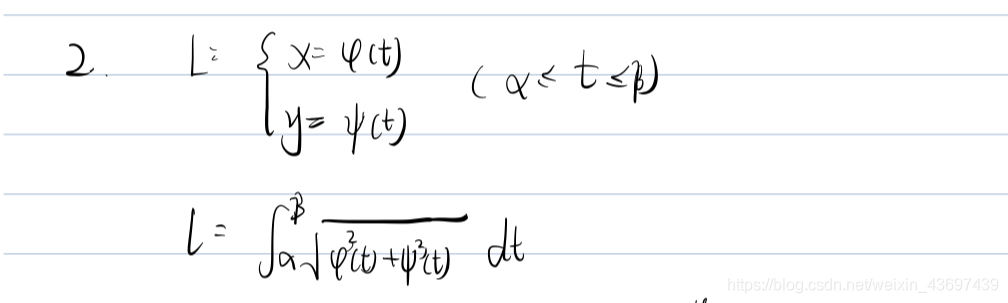 2. L: { x = φ(t)
y = ψ(t)
(α ≤ t ≤ β)
l = ∫_α^β √(φ²(t) + ψ²(t)) dt
https://blog.csdn.net/weixin_43697439